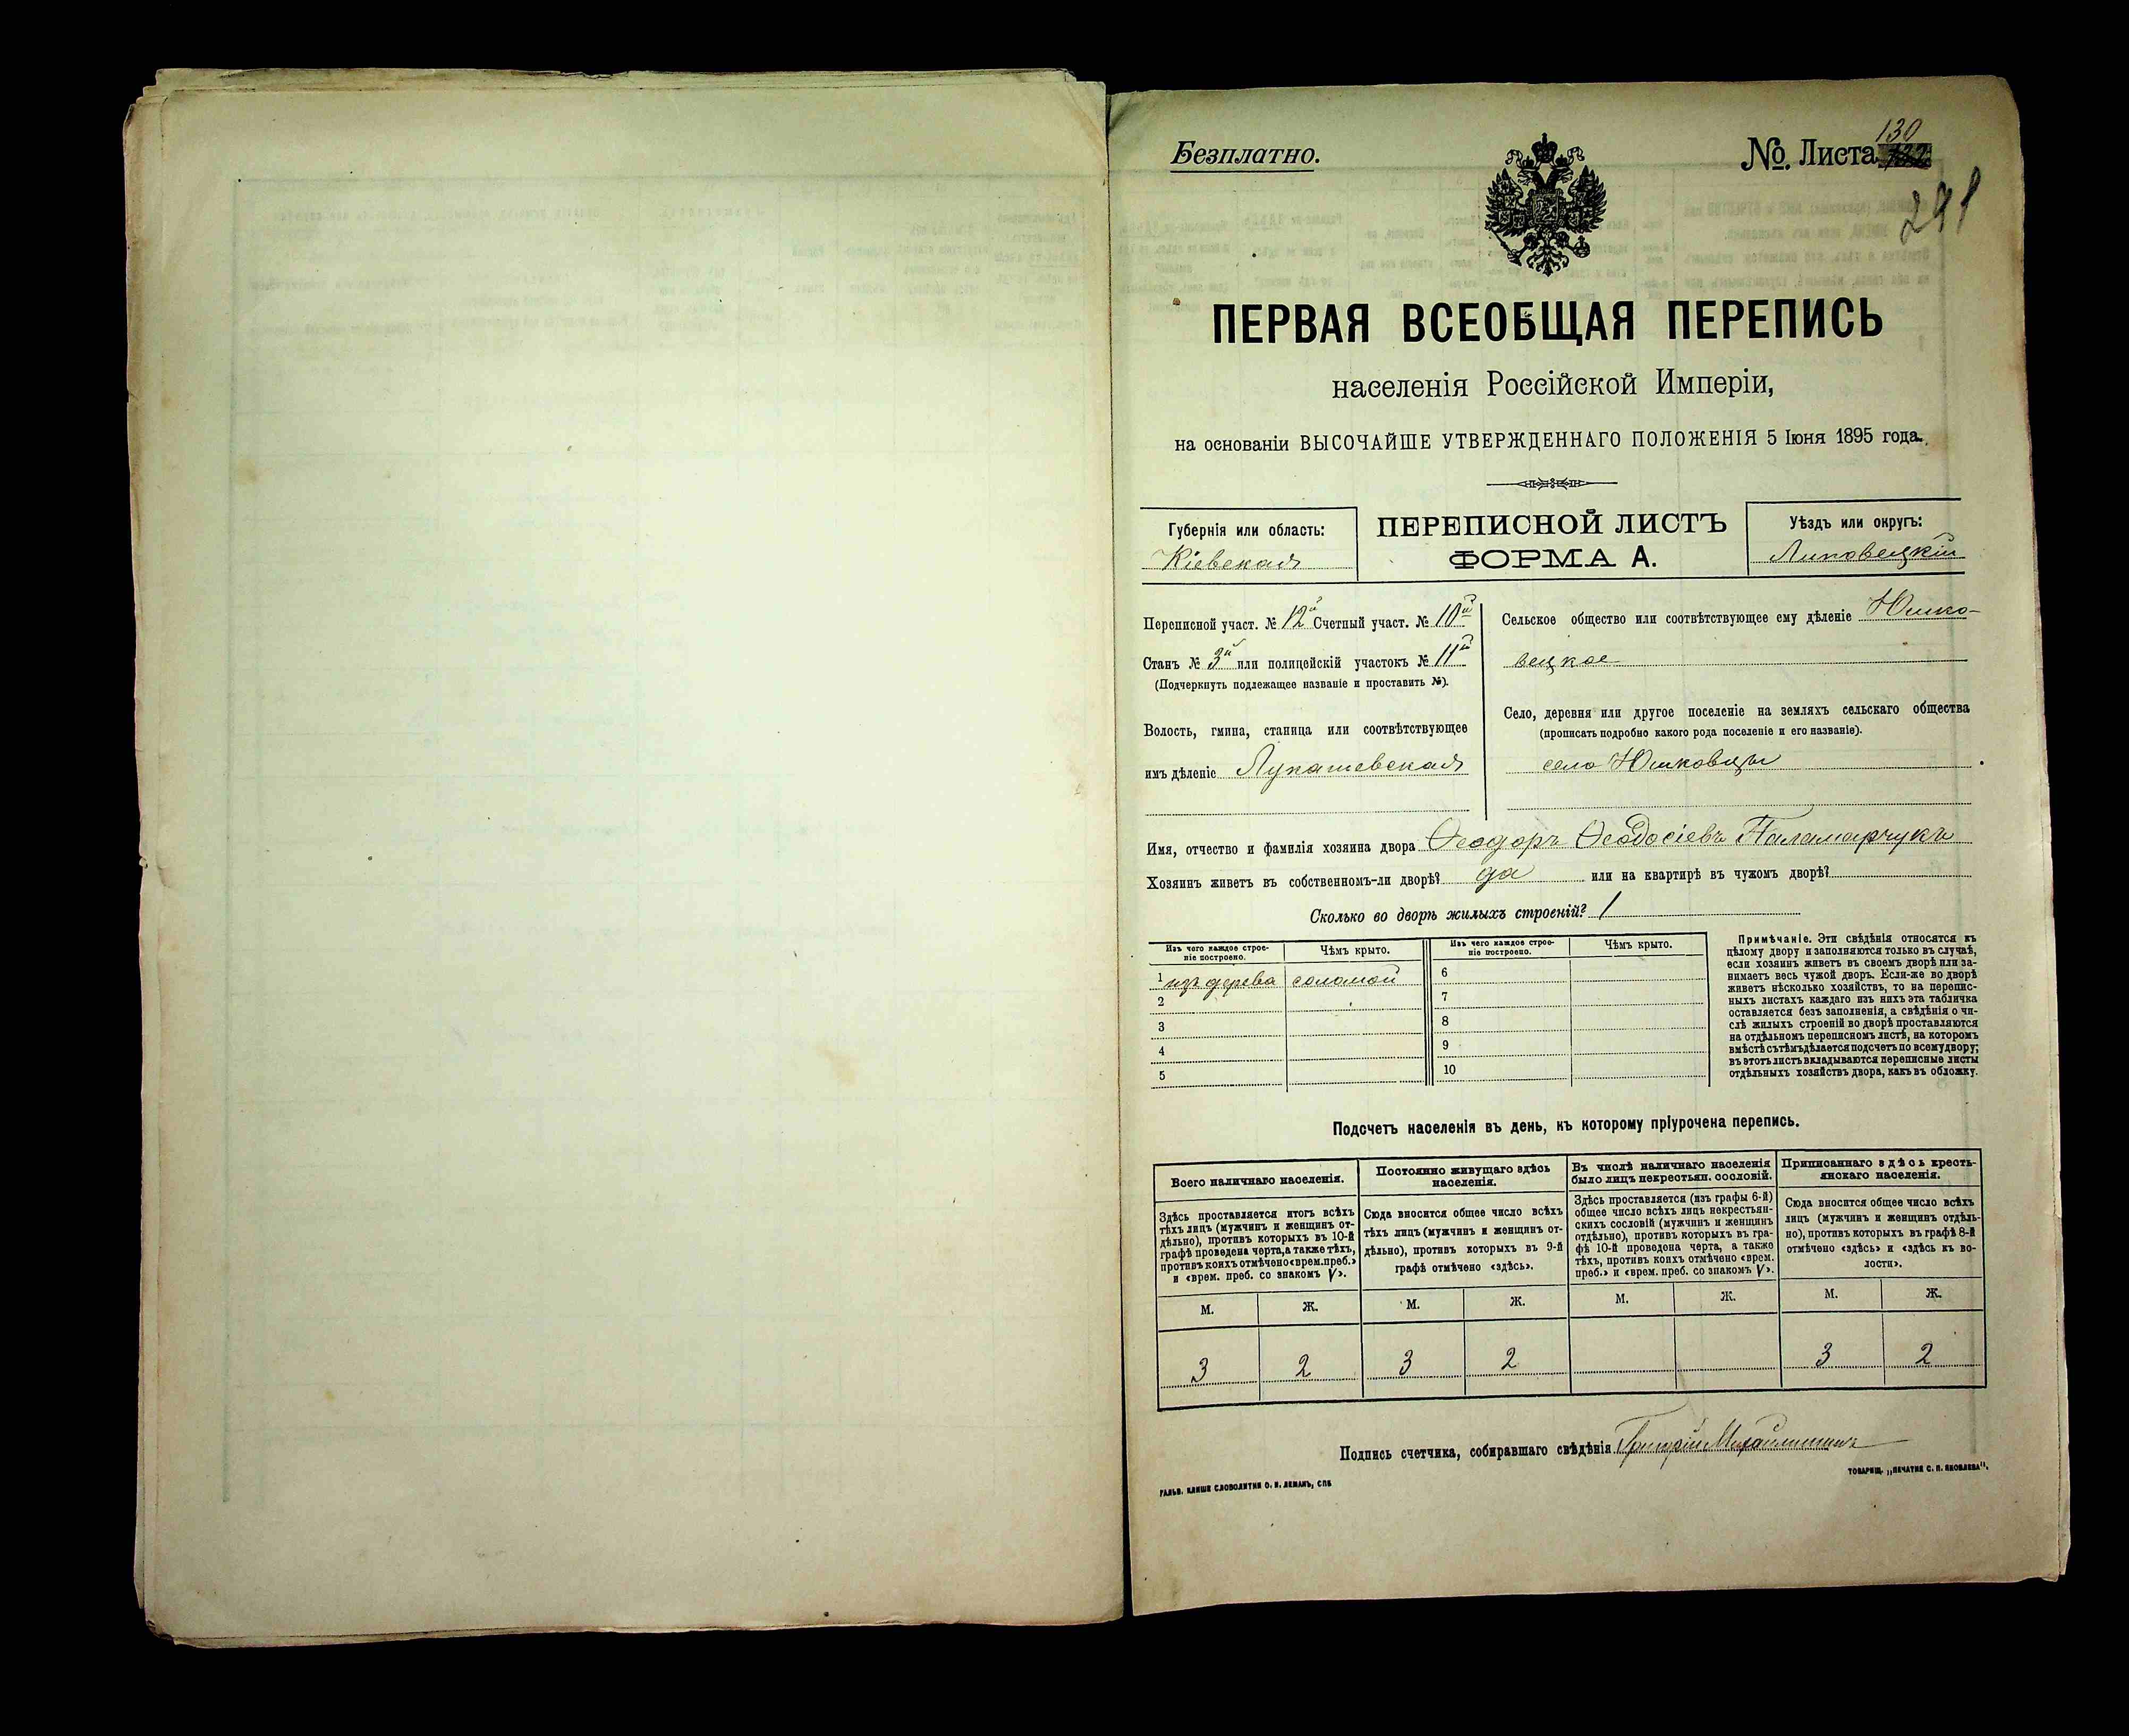 Безплатно.
№ Листа 130
291
ПЕРВАЯ ВСЕОБЩАЯ ПЕРЕПИСЬ
населенія Россійской Имперіи,
на основаніи ВЫСОЧАЙШЕ УТВЕРЖДЕННАГО ПОЛОЖЕНІЯ 5 Іюня 1895 года.
Губернія или область:
Кіевская
ПЕРЕПИСНОЙ ЛИСТЪ
ФОРМА А.
Уѣздъ или округъ:
Липовецкій
Переписной участ. № 12й Счетный участ. № 10й
Станъ № 3й или полицейскій участокъ № 11й
(Подчеркнуть подлежащее названіе и проставить №).
Волость, гмина, станица или соотвѣтствующее
имъ дѣленіе Лукашевская
Сельское общество или соотвѣтствующее ему дѣленіе Юшко-
вецкое
Село, деревня или другое поселеніе на земляхъ сельскаго общества
(прописать подробно какого рода поселеніе и его названіе).
село Юшковцы
Имя, отчество и фамилія хозяина двора Ѳеодоръ Ѳеодосіевъ Паламарчукъ
Хозяинъ живетъ въ собственномъ-ли дворѣ? да или на квартирѣ въ чужомъ дворѣ?
Сколько во дворѣ жилыхъ строеній? 1
Изъ чего каждое строе-
ніе построено.
Чѣмъ крыто.
Изъ чего каждое строе-
ніе построено.
Чѣмъ крыто.
1 изъ дерева соломой
2
3
4
5
6
7
8
9
10
Примѣчаніе. Эти свѣдѣнія относятся къ
цѣлому двору и заполняются только въ случаѣ,
если хозяинъ живетъ въ своемъ дворѣ или за-
нимаетъ весь чужой дворъ. Если-же во дворѣ
живетъ нѣсколько хозяйствъ, то на перепис-
ныхъ листахъ каждаго изъ нихъ эта табличка
оставляется безъ заполненія, а свѣдѣнія о чи-
слѣ жилыхъ строеній во дворѣ проставляются
на отдѣльномъ переписномъ листѣ, на которомъ
вмѣстѣ съ тѣмъ дѣлается подсчетъ по всему двору;
въ этотъ листъ вкладываются переписные листы
отдѣльныхъ хозяйствъ двора, какъ въ обложку.
Подсчетъ населенія въ день, къ которому пріурочена перепись.
Всего наличнаго населенія.
Здѣсь проставляется итогъ всѣхъ
тѣхъ лицъ (мужчинъ и женщинъ от-
дѣльно), противъ которыхъ въ 10-й
графѣ проведена черта, а также тѣхъ,
противъ коихъ отмѣчено «врем. преб.»
и «врем. преб. со знакомъ V».
Постоянно живущаго здѣсь
населенія.
Сюда вносится общее число всѣхъ
тѣхъ лицъ (мужчинъ и женщинъ от-
дѣльно), противъ которыхъ въ 9-й
графѣ отмѣчено «здѣсь».
Въ числѣ наличнаго населенія
было лицъ некрестьян. сословій.
Здѣсь проставляется (изъ графы 6-й)
общее число всѣхъ лицъ некрестьян-
скихъ сословій (мужчинъ и женщинъ
отдѣльно), противъ которыхъ въ гра-
фѣ 10-й проведена черта, а также
тѣхъ, противъ коихъ отмѣчено «врем.
преб.» и «врем. преб. со знакомъ V».
Приписаннаго здѣсь кресть-
янскаго населенія.
Сюда вносится общее число всѣхъ
лицъ (мужчинъ и женщинъ отдѣль-
но), противъ которыхъ въ графѣ 8-й
отмѣчено «здѣсь» и «здѣсь къ во-
лости».
М. Ж. М. Ж. М. Ж. М. Ж.
3 2 3 2 3 2
Подпись счетчика, собиравшаго свѣдѣнія Григорій
ГАЛЬВ. КЛИШЕ СЛОВОЛИТНИ О. И. ЛЕМАНЪ, СПБ
ТОВАРИЩ. „ПЕЧАТНЯ С. П. ЯКОВЛЕВА".